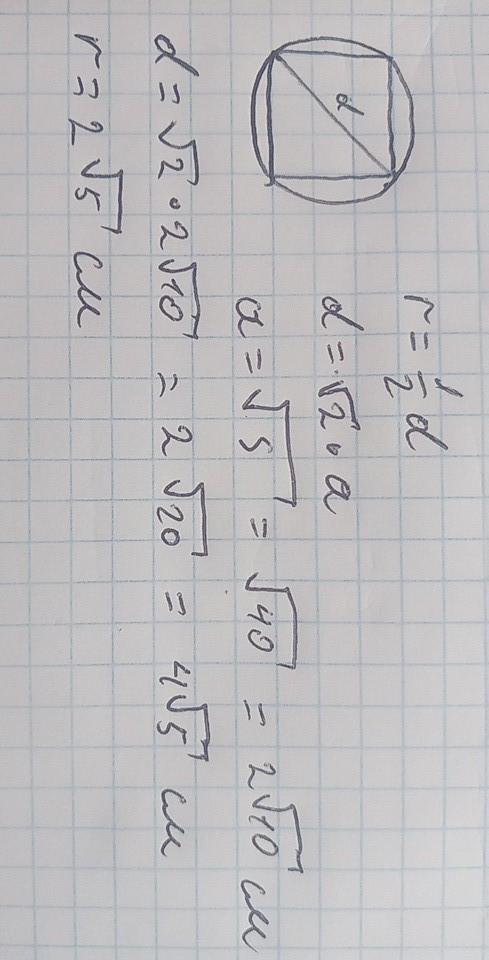 d
r = 1/2 d
d = √2 · a
a = √S = √40 = 2√10 см
d = √2 · 2√10 = 2√20 = 4√5 см
r = 2√5 см